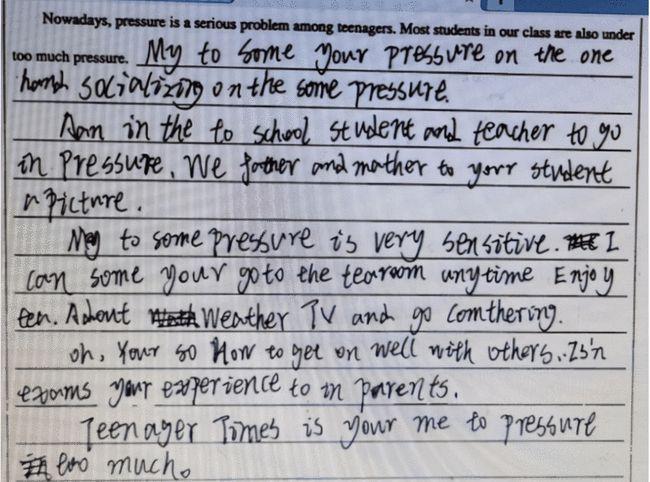 Nowadays, pressure is a serious problem among teenagers. Most students in our class are also under
too much pressure. My to some your pressure on the one
hand socializing on the some pressure.
Aan in the to school student and teacher to go
in pressure. We father and mather to your student
a picture.
My to some pressure is very sensitive. I
can some your goto the tearoom anytime Enjoy
teen. About Weather TV and go Comthering.
oh, Your so How to get on well with others. Is'n
exams your experience to in parents.
Teenager Times is your me to pressure
too much.